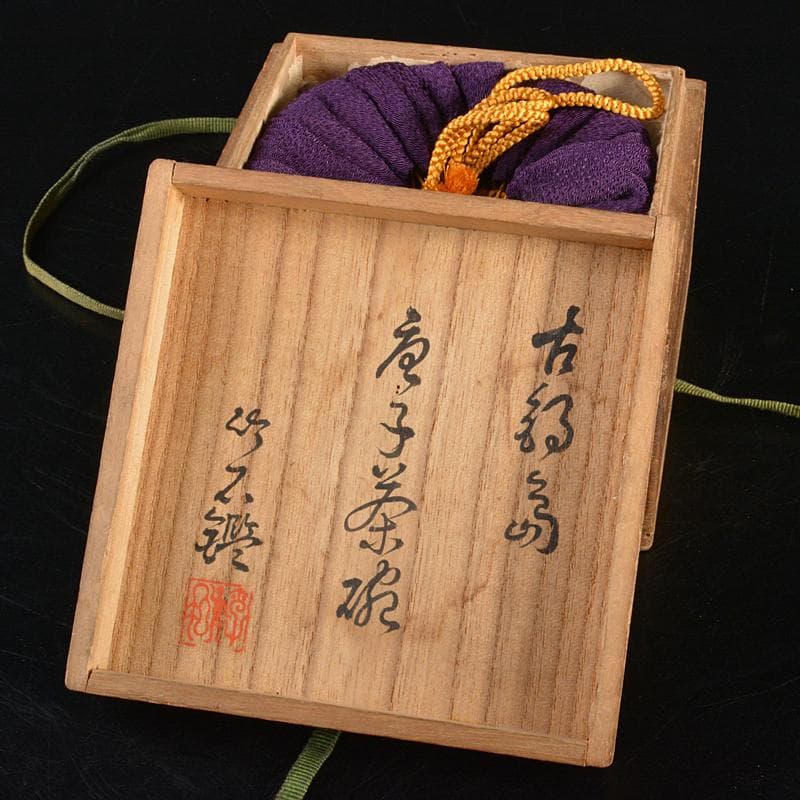 古鍋島
唐子茶碗
竹石鑑